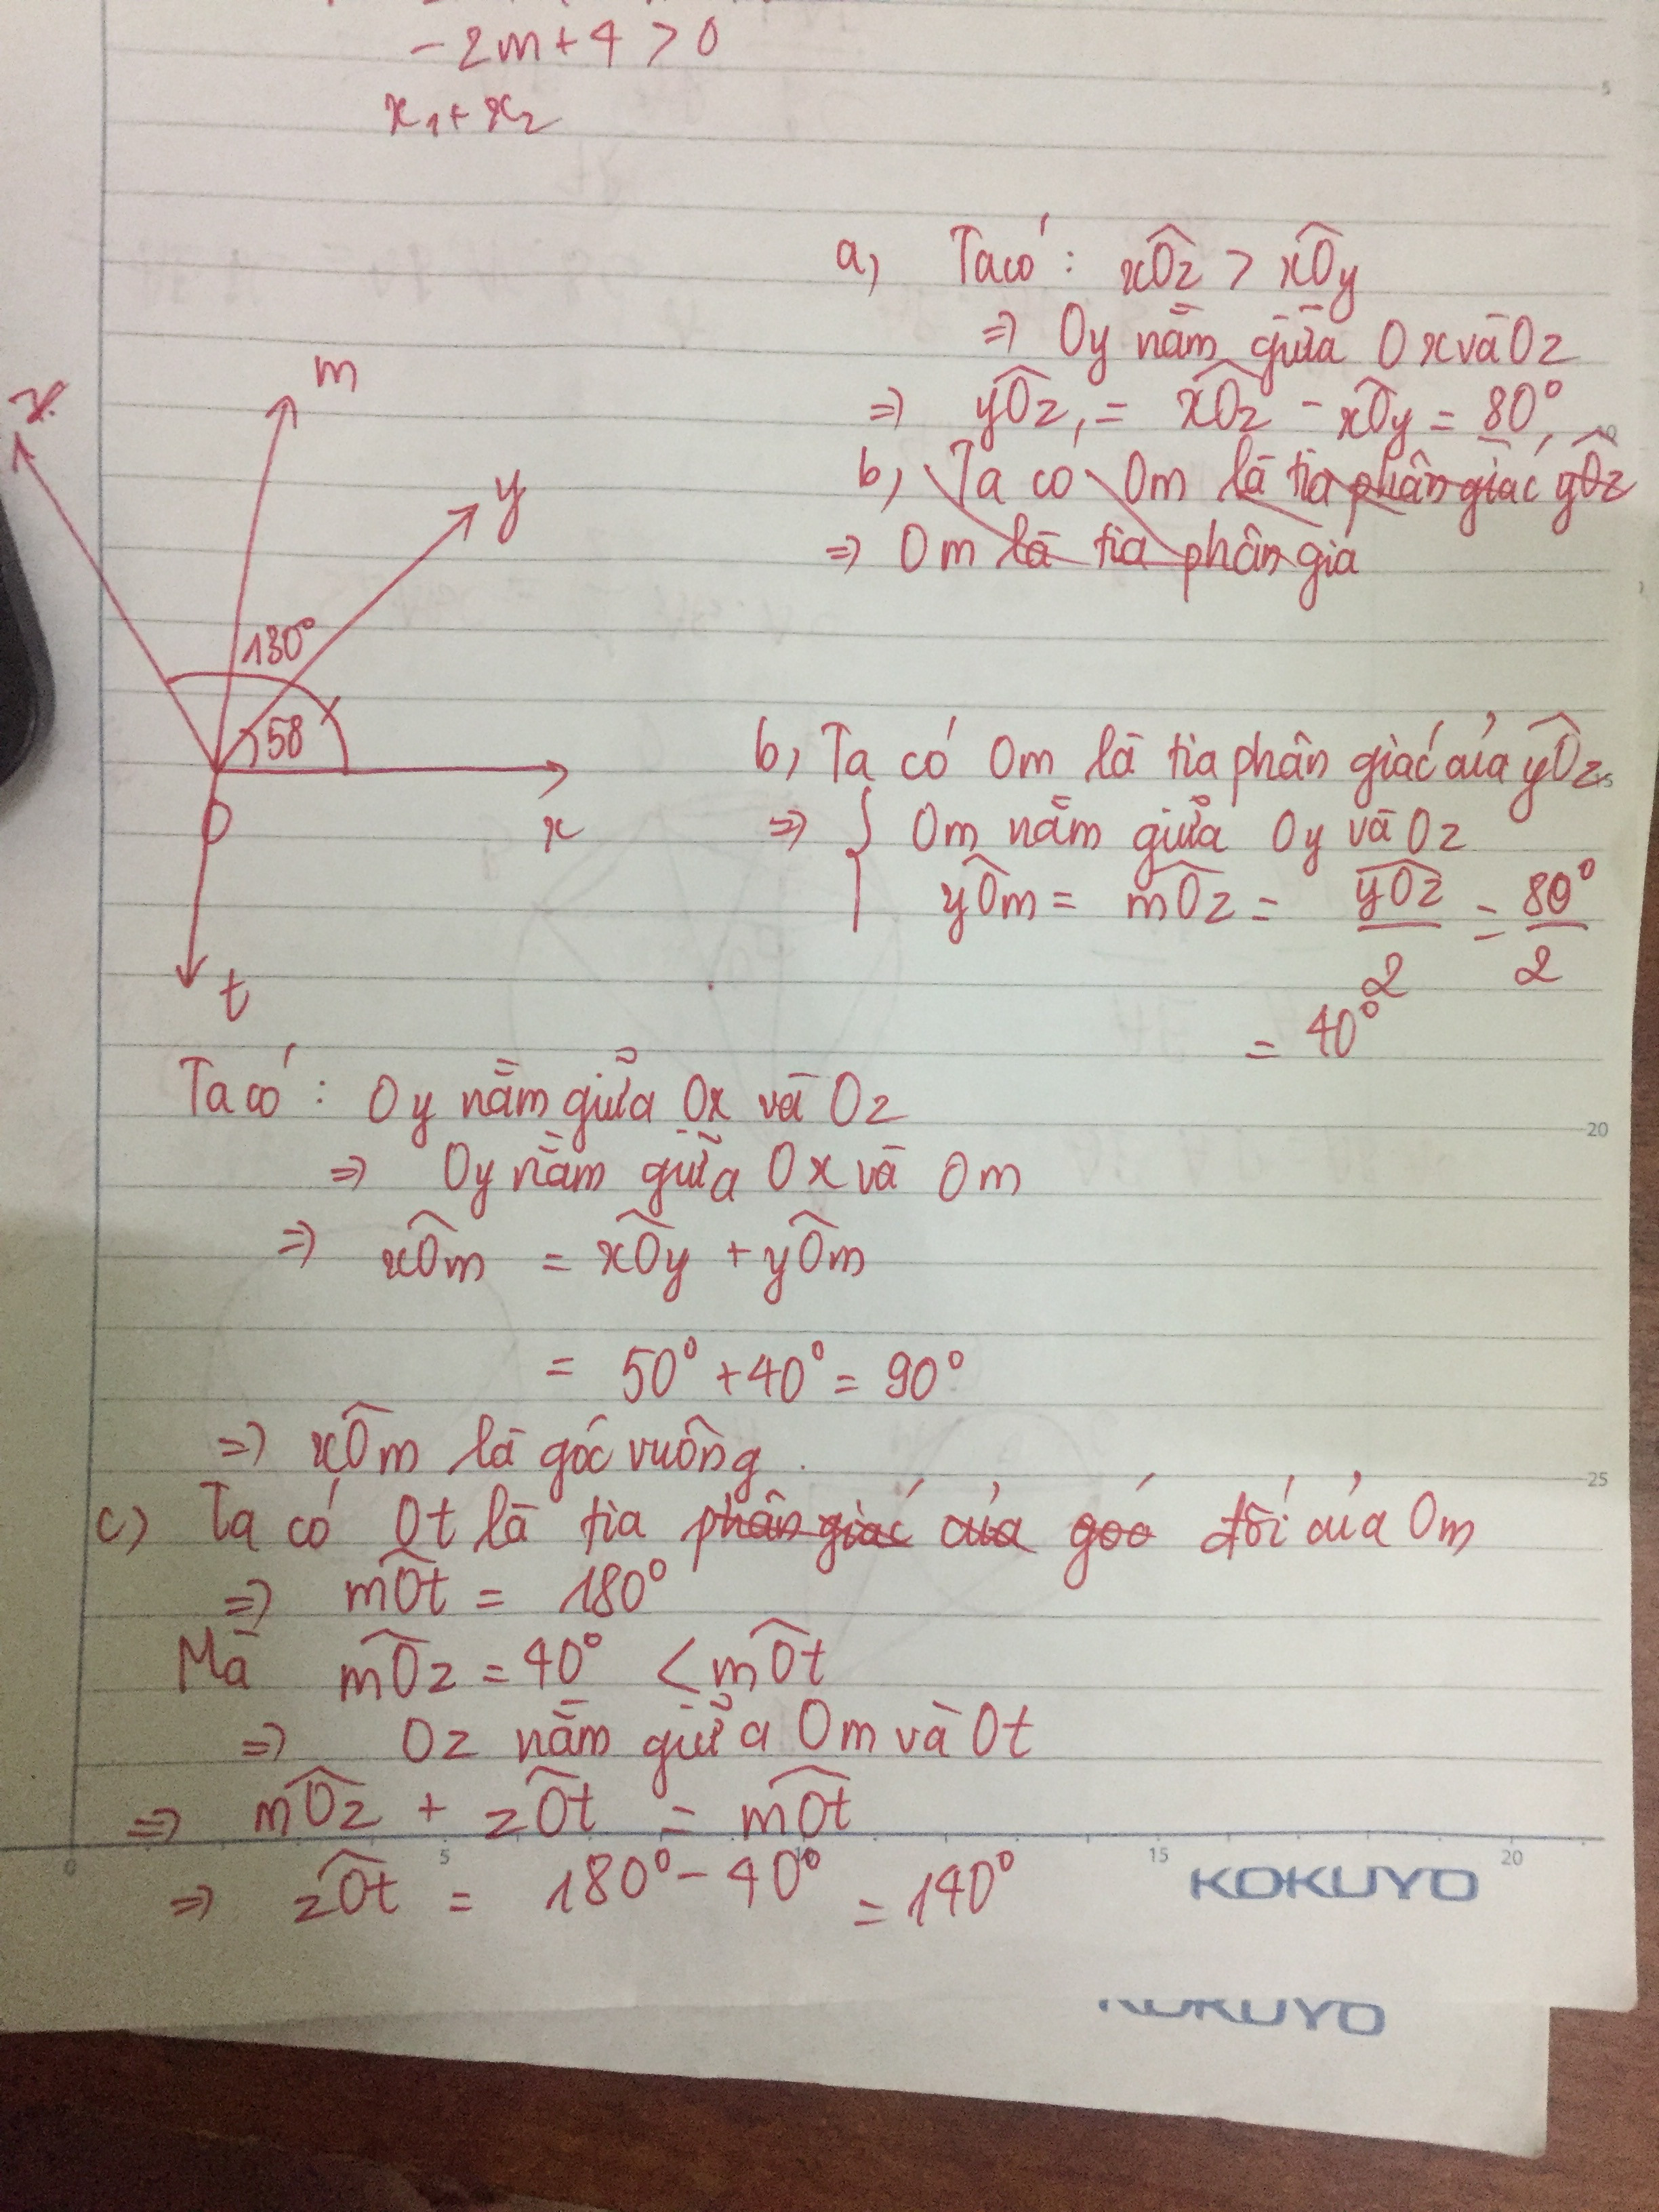 -2m+4>0
x₁+x₂
a, Ta có: xOz > xOy
=> Oy nằm giữa Ox và Oz
=> yOz = xOz - xOy = 80°
b, Ta có Om là tia phân giác yOz
=> Om là tia phân giá
m
y
130°
50
O
x
t
b, Ta có Om là tia phân giác của yOz
=> { Om nằm giữa Oy và Oz
yOm = mOz = yOz/2 = 80°/2
= 40°
Ta có: Oy nằm giữa Ox và Oz
=> Oy nằm giữa Ox và Om
=> xOm = xOy + yOm
= 50° + 40° = 90°
=> xOm là góc vuông.
c) Ta có Ot là tia phân giác của goá đối của Om
=> mOt = 180°
Mà mOz = 40° < mOt
=> Oz nằm giữa Om và Ot
=> mOz + zOt = mOt
=> zOt = 180° - 40° = 140°
5
20
25
0 5 10 15 20
KOKUYO
KOKUYO